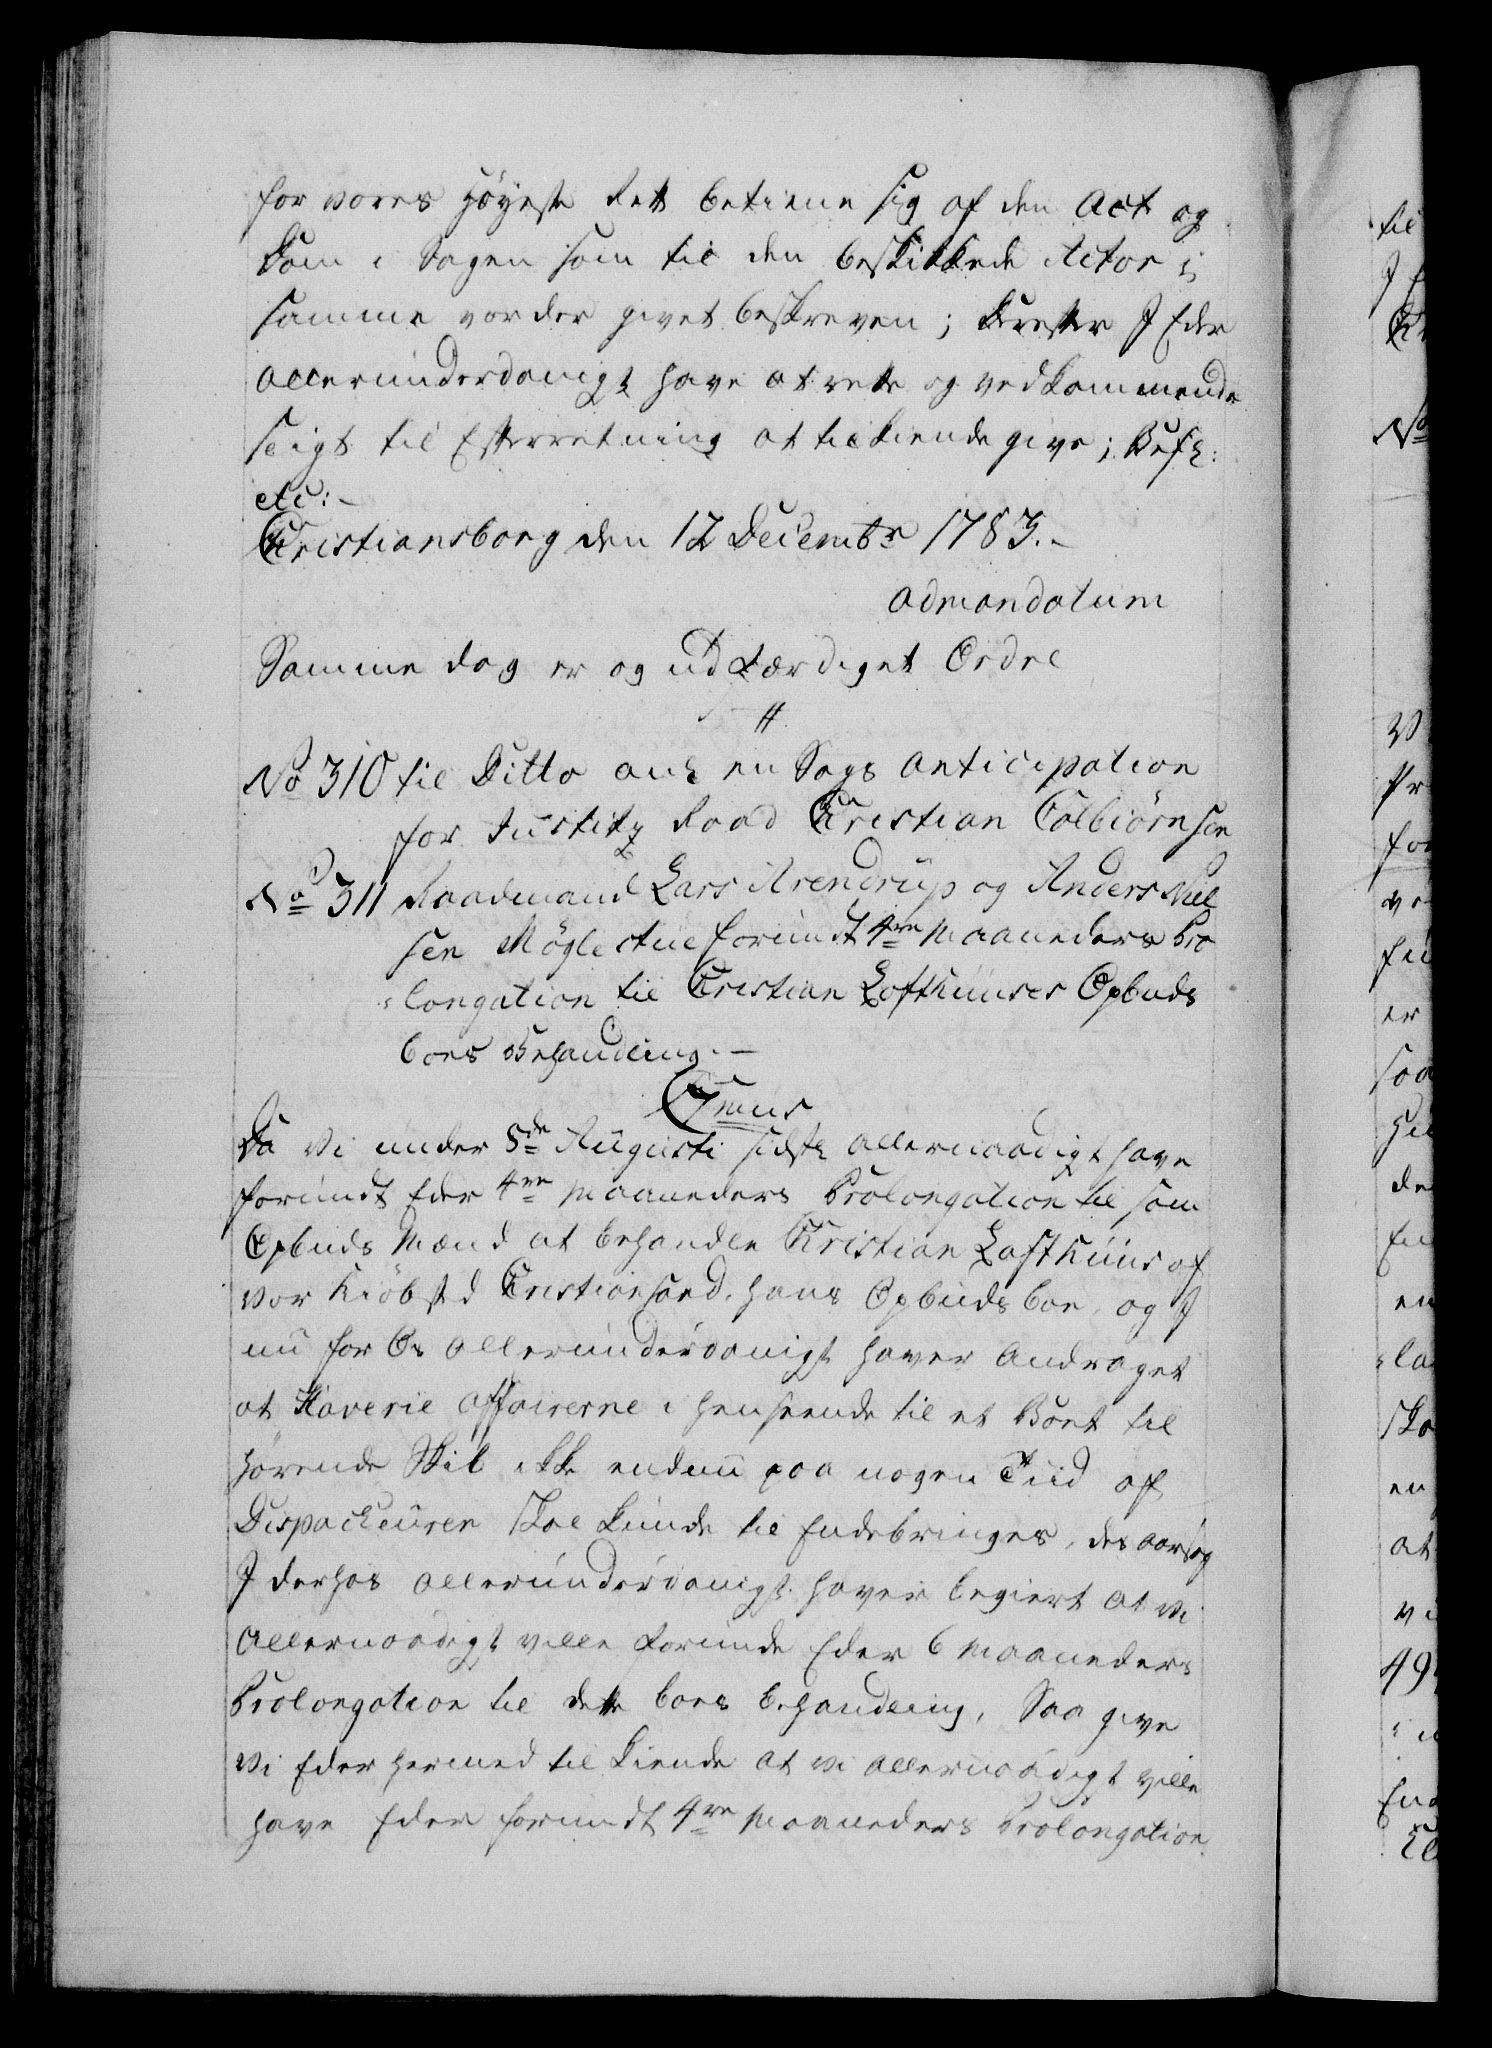 for vores Høyeste Rett betiene sig af den Act og
Dom i Sagen som til den beskikkede Actor i
samme vorder givet beskreven; Derefter I Eder
allerunderdanigst have at rette og vedkommende
sligt til Efterretning at tilkiende give; Befh:
etc:-
Christiansborg den 12 Decembr 1783.-
admandatum
Samme dag er og udfærdiget Ordre
No 310 til Ditto anl en Sags anticipation
for Justitz Raad Christian Colbiørnsen
No 311 Raadmand Lars Arendrup og Anders Niel
sen Møglestue forundt 4re Maaneders Pro
longation til Christian Lofthuuses Opbuds
boes Behandling.-
C7mus
Da Vi under 5de Augusti sidste allernaadigst have
forundt Eder 4re Maaneders Prolongation til som
Opbuds Mænd at behandle Christian Lofthuus af
vor Kiøbsted Christiansand, hans Opbuds boe, og I
nu for Os allerunderdanigst haver andraget
at Haverie affairerne i henseende til et Boet til
hørende Skib ikke endnu paa nogen Tiid af
Dispacheuren skal kunde til Endebringes, des aarsag
I derhos allerunderdanigst haver begiert at vi
allernaadigst ville forunde Eder 6 Maaneders
Prolongation til dette boes behandling, Saa give
Vi Eder hermed til kiende at vi allernaadigst ville
have Eder forundt 4re Maaneders Prolongation